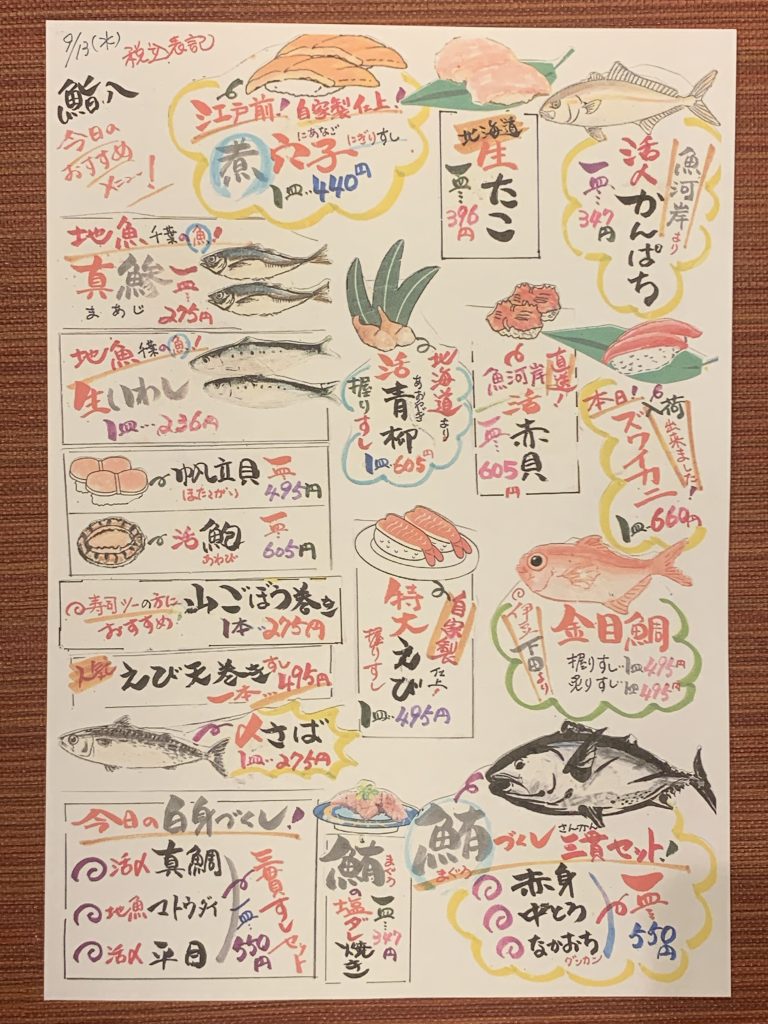 9/13(水)
税込表記
鮨八
今日の
おすすめ
メニュー!
江戸前!自家製仕上!
にあなご
煮穴子にぎりすし
1皿…440円
北海道
生たこ
一皿…396円
魚河岸より
活〆かんぱち
一皿…347円
地魚千葉の魚!
真鯵
まあじ
一皿…275円
地魚千葉の魚!
生いわし
1皿…236円
北海道より
活青柳
あおやぎ
握りすし
1皿…605円
魚河岸直送!
活赤貝
一皿…605円
本日!入荷出来ました!
ズワイカニ
1皿…660円
帆立貝
ほたてがい
一皿…495円
活鮑
あわび
一皿…605円
寿司ツーの方に
おすすめ
山ごぼう巻き
1本…275円
人気
えび天巻きすし
一本…495円
自家製仕上!
特大えび
握りすし
1皿…495円
伊豆下田より
金目鯛
握りすし…1皿495円
炙りすし…1皿495円
〆さば
1皿…275円
今日の白身づくし!
活〆真鯛
地魚マトウダイ
活〆平目
三貫すしセット
一皿…550円
まぐろ
鮪の塩ダレ焼き
一皿…347円
さんかん
鮪づくし三貫セット!
まぐろ
赤身
中とろ
なかおち
グンカン
一皿…550円